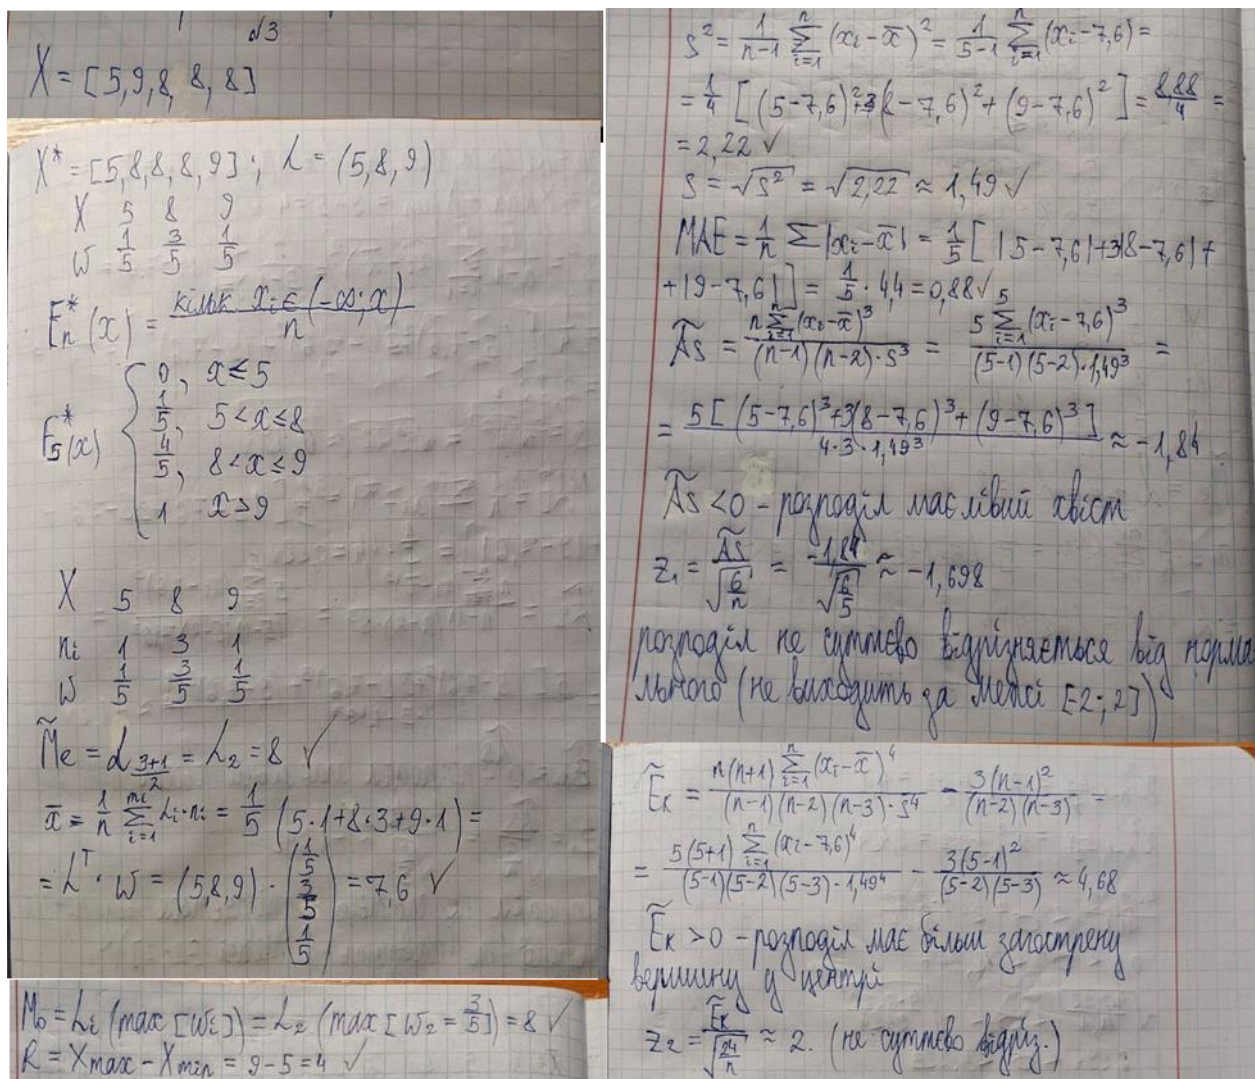 №3
X = [5,9,8, 8, 8]
X* = [5,8,8,8,9]; L = (5,8,9)
X 5 8 9
W 1/5 3/5 1/5
F*n(x) = кільк xᵢ є (-∞; x) / n
F*5(x) { 0, x ≤ 5
1/5, 5 < x ≤ 8
4/5, 8 < x ≤ 9
1 x > 9
X 5 8 9
nᵢ 1 3 1
W 1/5 3/5 1/5
M̃e = L_(3+1)/2 = L₂ = 8 ✓
x̄ = 1/n Σ(i=1, mᵢ) Lᵢ·nᵢ = 1/5 (5·1+8·3+9·1) =
= Lᵀ · W = (5,8,9) · (1/5 3/5 1/5) = 7,6 ✓
M₀ = Lᵢ (max [Wᵢ]) = L₂ (max [W₂ = 3/5]) = 8 ✓
R = Xmax - Xmin = 9-5 = 4 ✓
s² = 1/(n-1) Σ(i=1, n) (xᵢ - x̄)² = 1/(5-1) Σ(i=1, n) (xᵢ - 7,6) =
= 1/4 [ (5-7,6)²+3(8-7,6)²+(9-7,6)² ] = 8,88/4 =
= 2,22 ✓
s = √s² = √2,22 ≈ 1,49 ✓
MAE = 1/n Σ |xᵢ - x̄| = 1/5 [ |5-7,6|+3|8-7,6|+
+|9-7,6| ] = 1/5 · 4,4 = 0,88 ✓
Ãs = n Σ(i=1, n) (xᵢ - x̄)³ / (n-1)(n-2)·s³ = 5 Σ(i=1, 5) (xᵢ - 7,6)³ / (5-1)(5-2)·1,49³ =
= 5[ (5-7,6)³+3(8-7,6)³+(9-7,6)³ ] / 4·3·1,49³ ≈ -1,84
Ãs < 0 - розподіл має лівий хвіст
z₁ = Ãs / √(6/n) = -1,84 / √(6/5) ≈ -1,698
розподіл не суттєво відрізняється від норма
льного (не виходить за межі [-2; 2])
Ẽk = n(n+1) Σ(i=1, n) (xᵢ - x̄)⁴ / (n-1)(n-2)(n-3)·s⁴ - 3(n-1)² / (n-2)(n-3) =
= 5(5+1) Σ(i=1, n) (xᵢ - 7,6)⁴ / (5-1)(5-2)(5-3)·1,49⁴ - 3(5-1)² / (5-2)(5-3) ≈ 4,68
Ẽk > 0 - розподіл має більш загострену
вершину у центрі
z₂ = Ẽk / √(24/n) ≈ 2. (не суттєво відріз.)